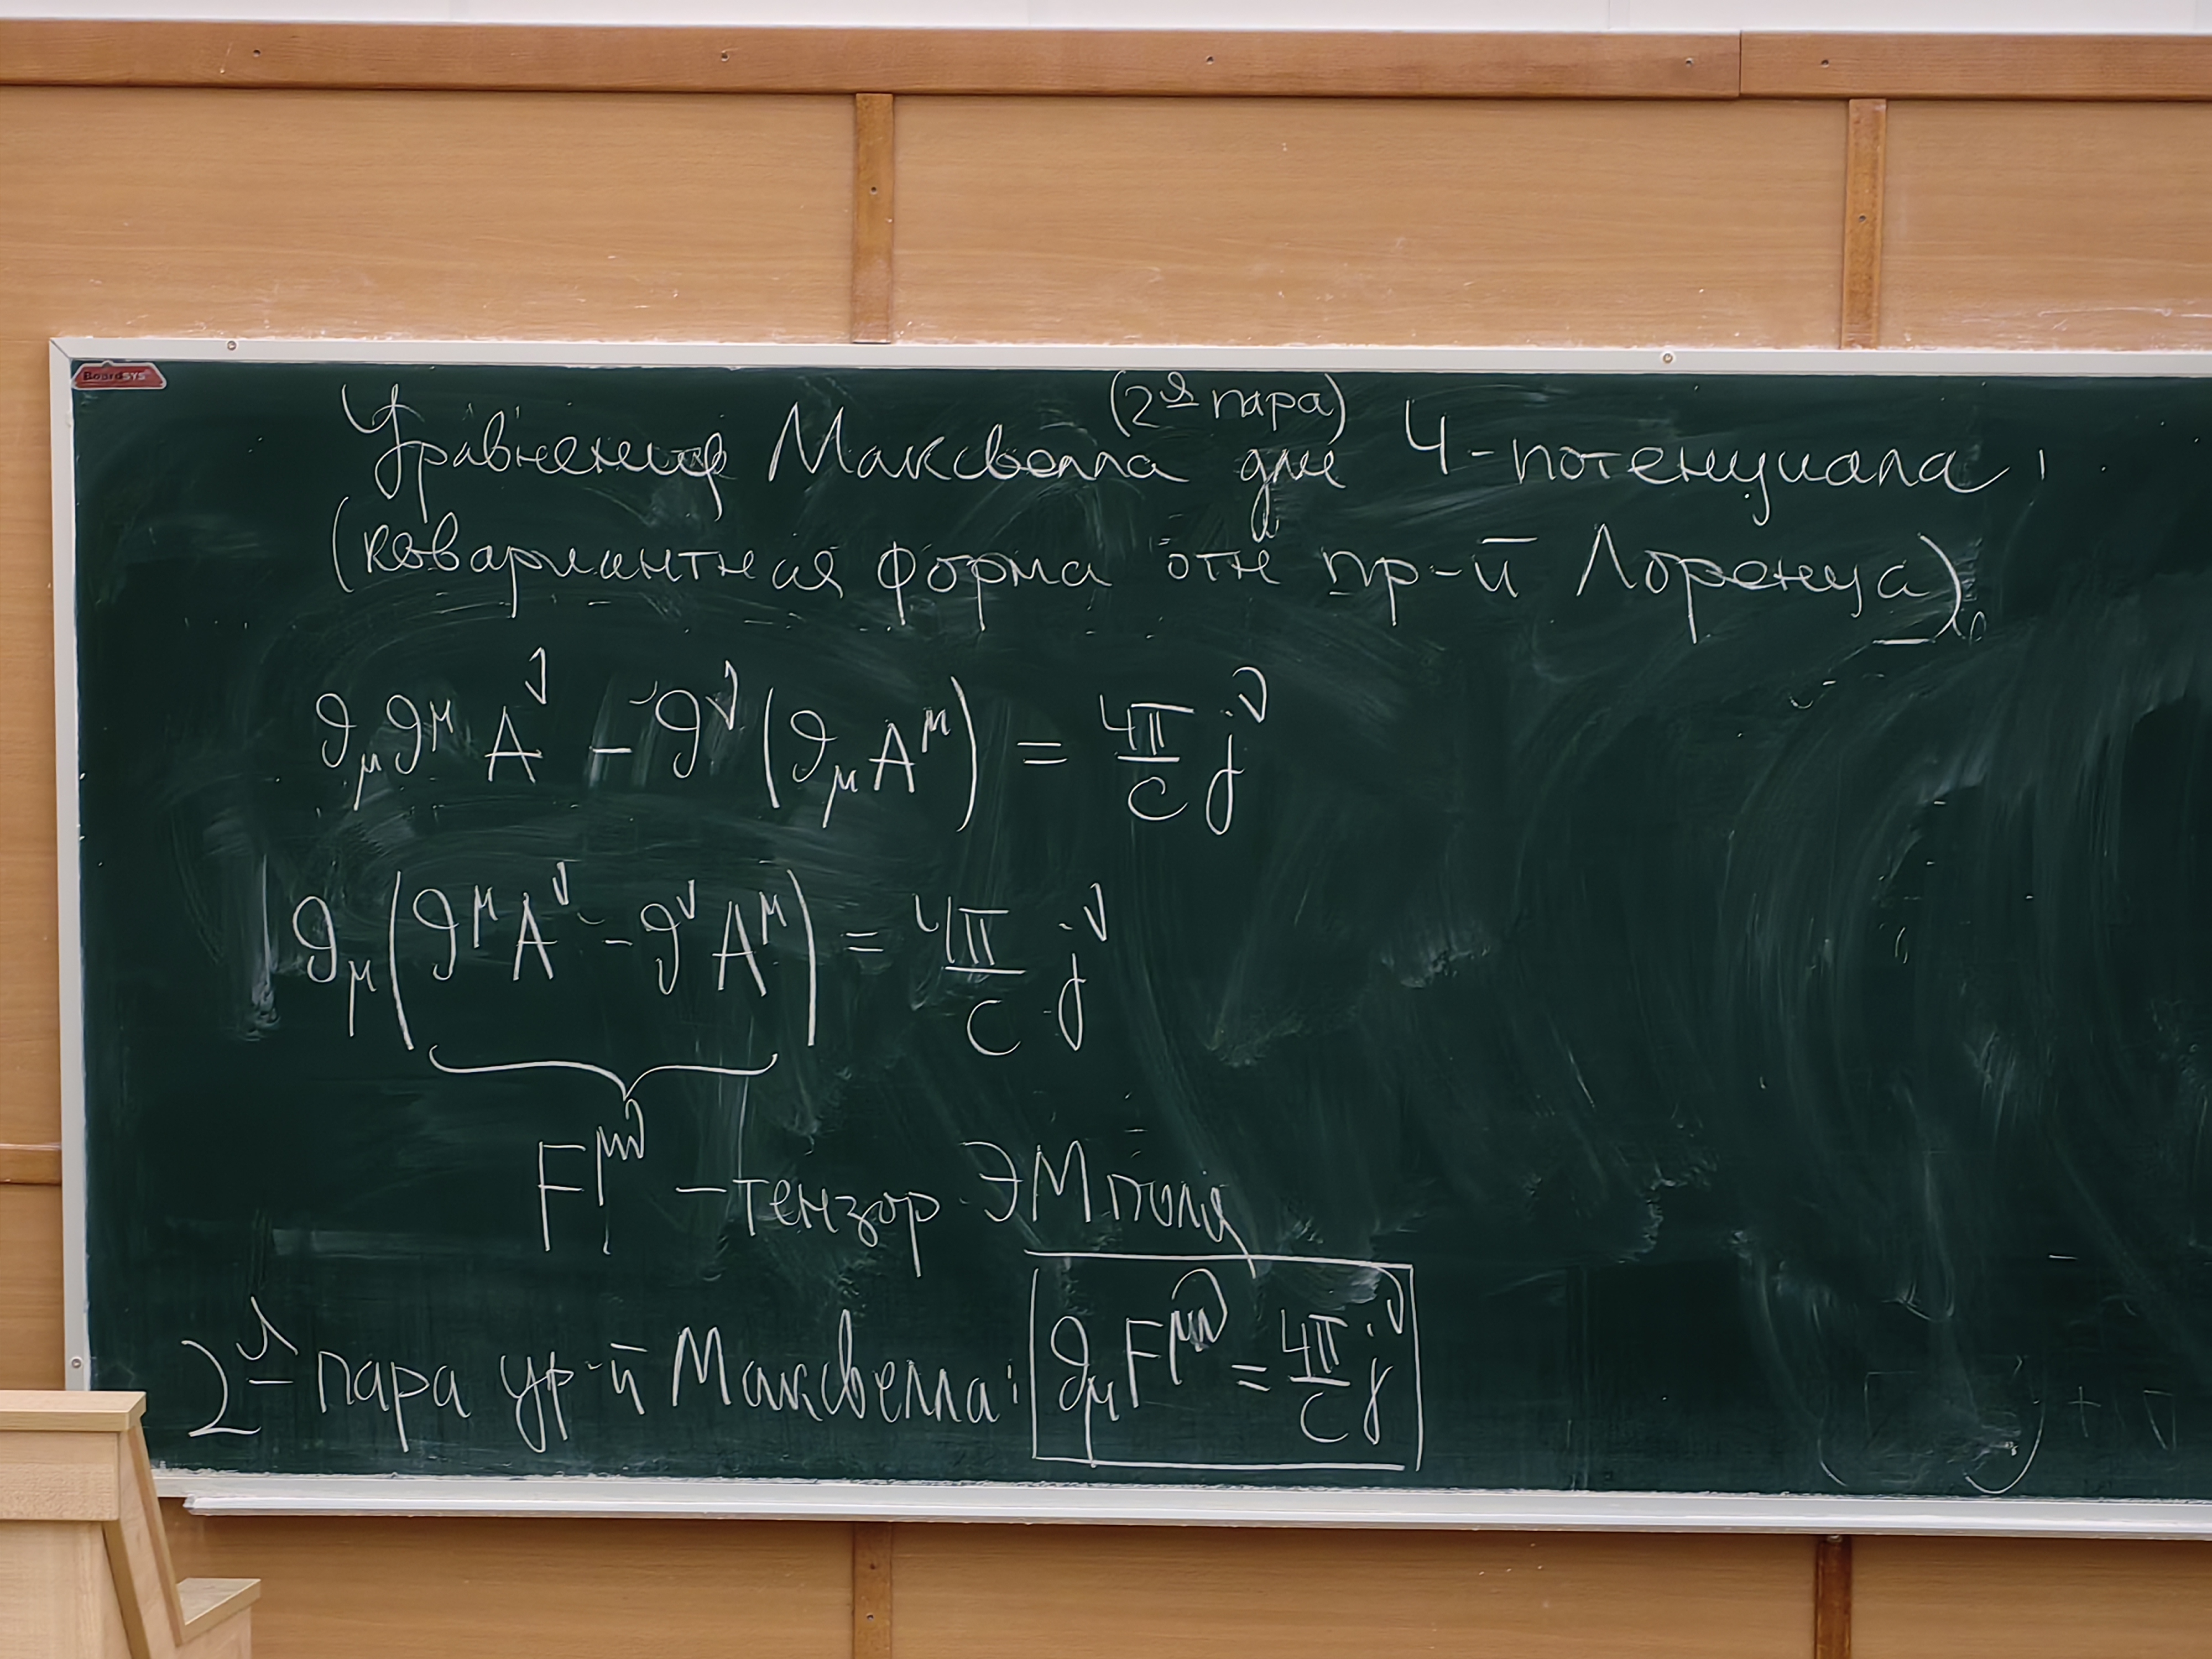 BoardSYS
(2я пара)
Уравнения Максвелла для 4-потенциала
(ковариантная форма отн пр-й Лоренца)
∂_μ ∂^μ A^ν − ∂^ν (∂_μ A^μ) = 4π/c j^ν
∂_μ (∂^μ A^ν − ∂^ν A^μ) = 4π/c j^ν
F^μν – тензор ЭМ поля
2я пара ур-й Максвелла: ∂_μ F^μν = 4π/c j^ν